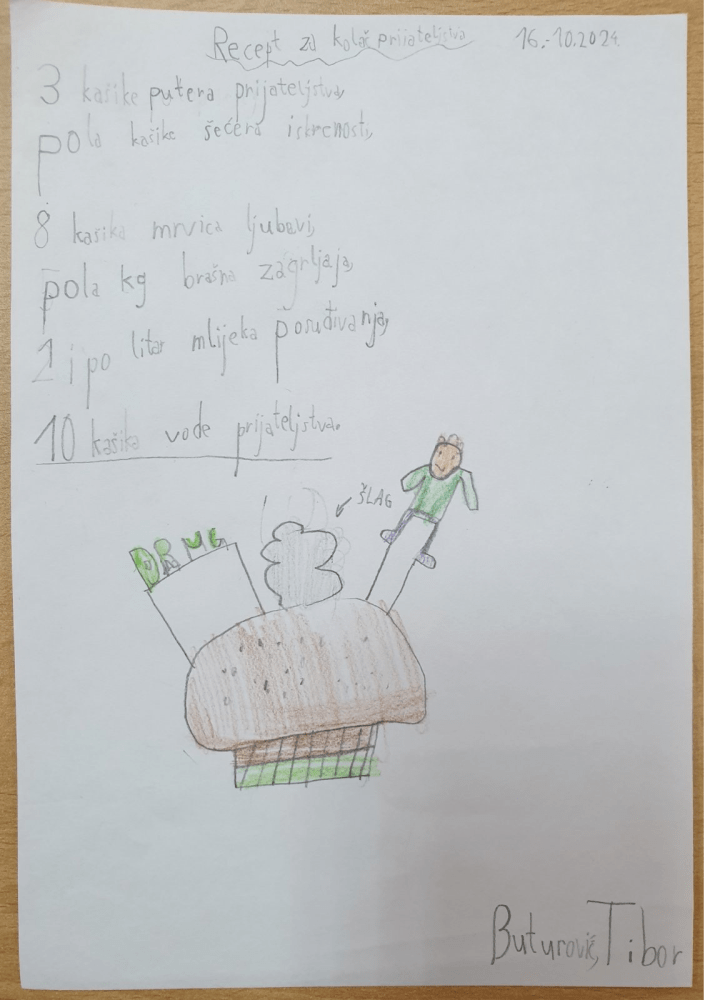 Recept za kolač prijateljstva 16.-10.2024.
3 kašike putera prijateljstva,
pola kašike šećera iskrenosti,
8 kasika mrvica ljubavi,
pola kg brašna zagrljaja,
1 i po litar mlijeka porudivanja,
10 kašika vode prijateljstva.
ŠLAG
DRUG
Buturović, Tibor